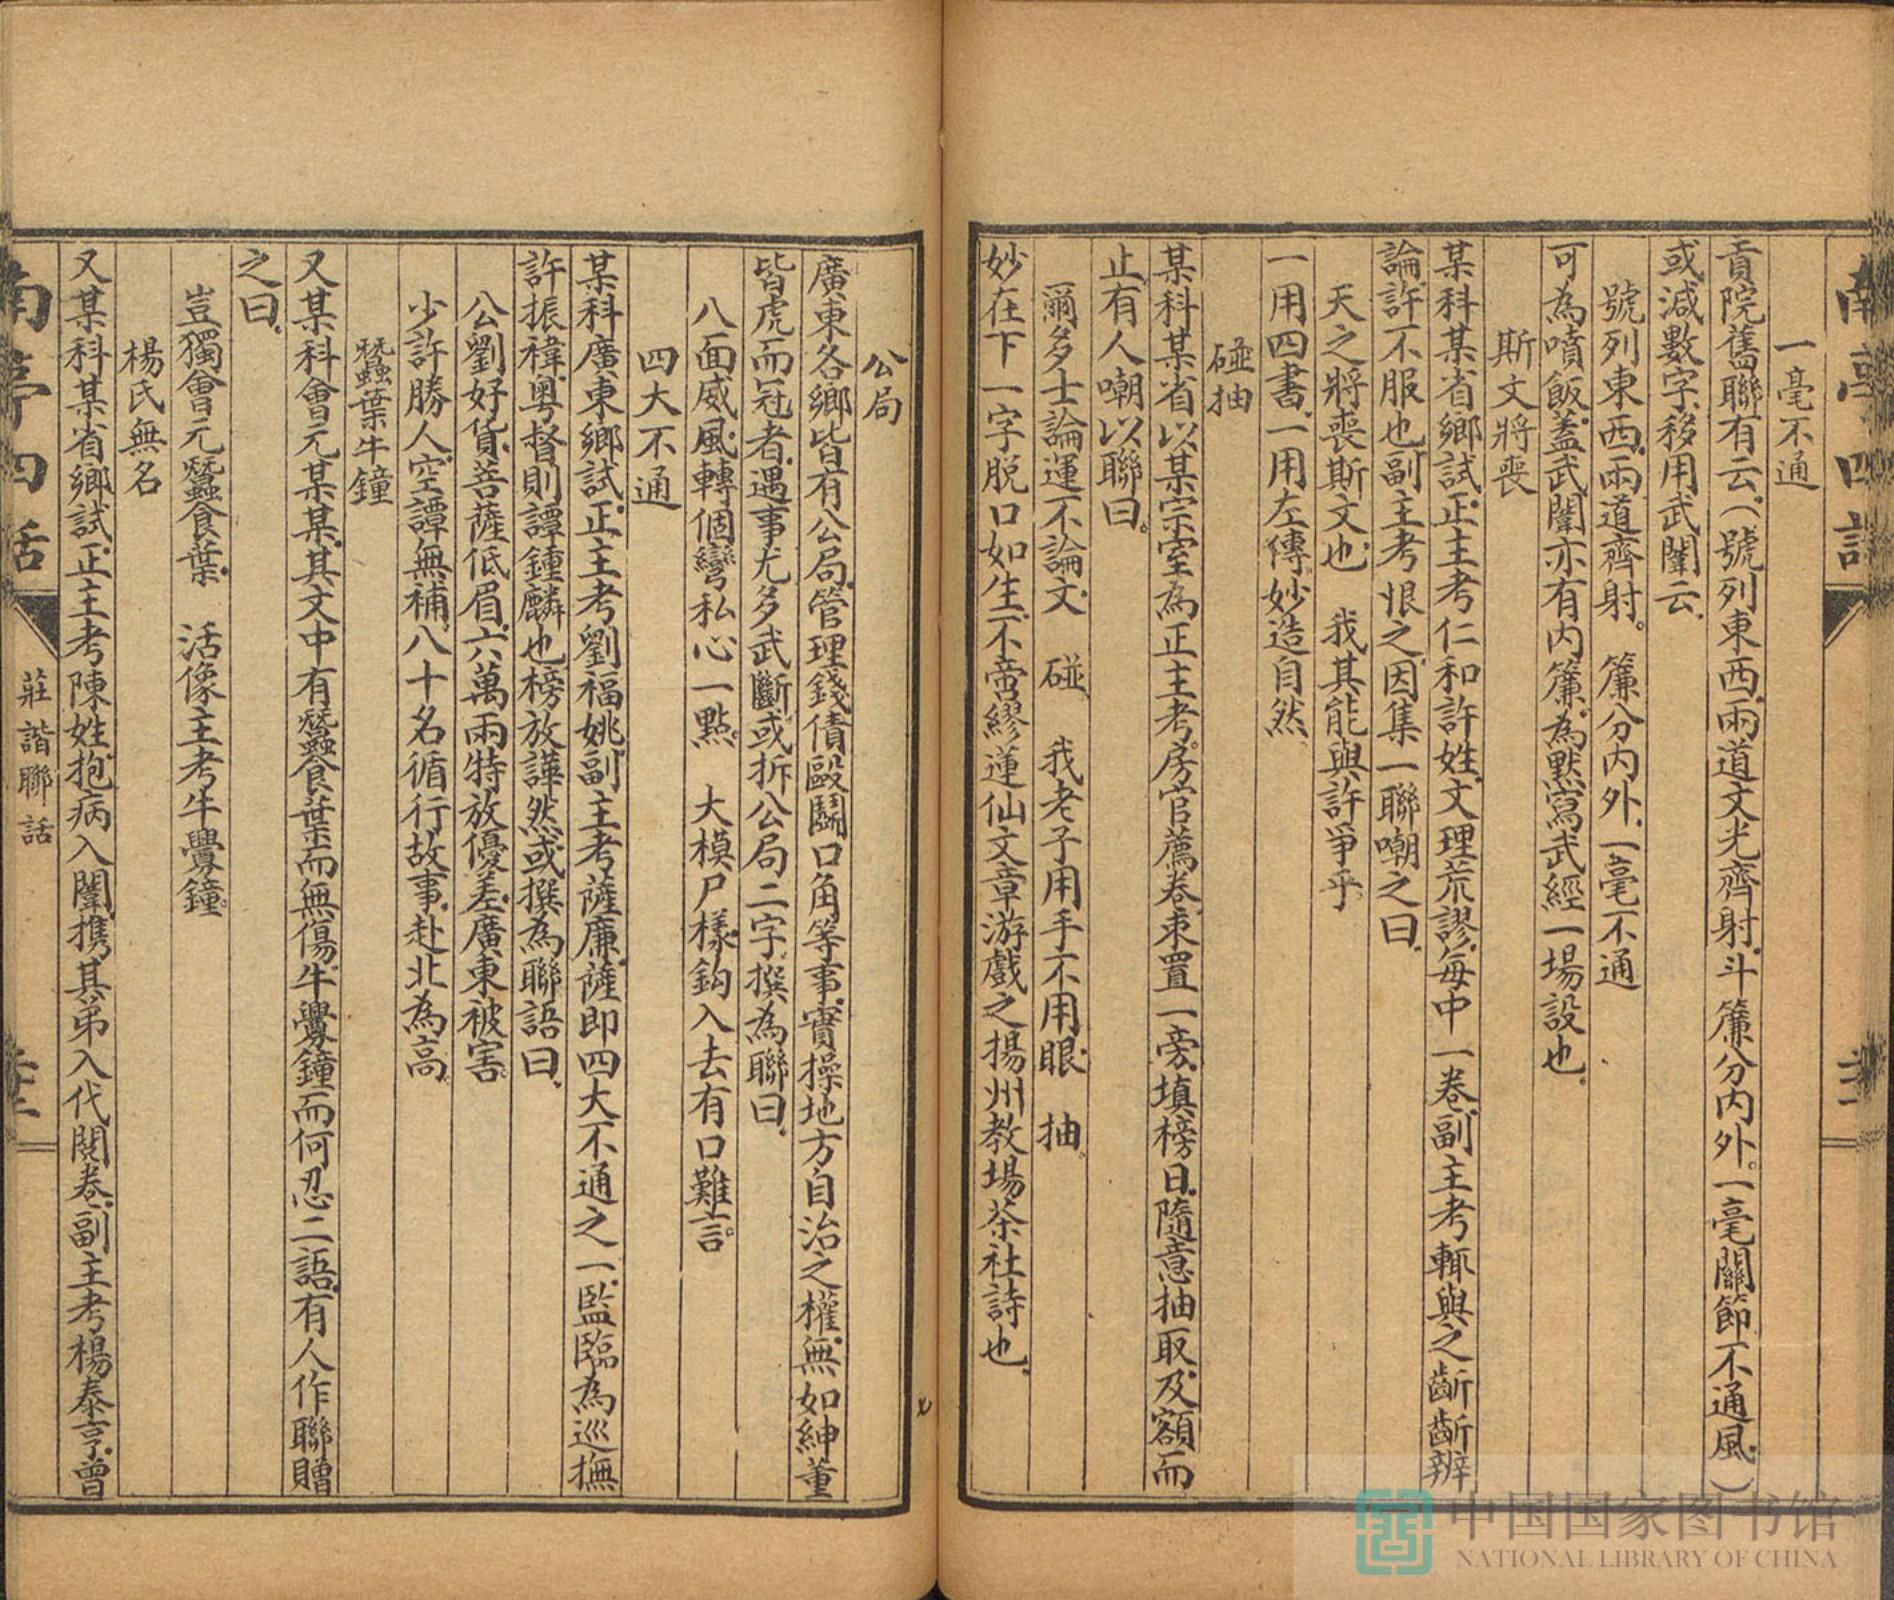 南亭四話
一毫不通
貢院舊聯有云（號列東西兩道文光齊射斗簾分內外一毫關節不通風）
或減數字移用武闈云
號列東西兩道齊射。簾分內外一毫不通
可為噴飯蓋武闈亦有內簾為默寫武經一場設也
斯文將喪
某科某省鄉試正主考仁和許姓文理荒謬每中一卷副主考輒與之齗齗辨
論許不服也副主考恨之因集一聯嘲之曰
天之將喪斯文也　我其能與許爭乎
一用四書一用左傳妙造自然
碰抽
某科某省以某宗室為正主考房官薦卷束置一旁填榜日隨意抽取及額而
止有人嘲以聯曰。
爾多士論運不論文　碰　我老子用手不用眼　抽
妙在下一字脱口如生不啻繆蓮仙文章游戲之揚州教場茶社詩也
公局
廣東各鄉皆有公局管理錢債毆鬭口角等事實操地方自治之權無如紳董
皆虎而冠者遇事尤多武斷或拆公局二字撰為聯曰
八面威風轉個彎私心一點　大模尸樣鈎入去有口難言。
四大不通
某科廣東鄉試正主考劉福姚副主考薩廉薩即四大不通之一監臨為巡撫
許振禕粵督則譚鍾麟也榜放譁然或撰為聯語曰
公劉好貨菩薩低眉六萬兩特放優差廣東被害
少許勝人空譚無補八十名循行故事赴北為高
蠶葉牛鐘
又某科會元某某其文中有蠶食葉而無傷牛釁鐘而何忍二語有人作聯贈
之曰
豈獨會元蠶食葉　活像主考牛釁鐘
楊氏無名
又某科某省鄉試正主考陳姓抱病入闈携其弟入代閱卷副主考楊泰亨曾
南亭四話
莊諧聯話
中国国家图书馆
NATIONAL LIBRARY OF CHINA